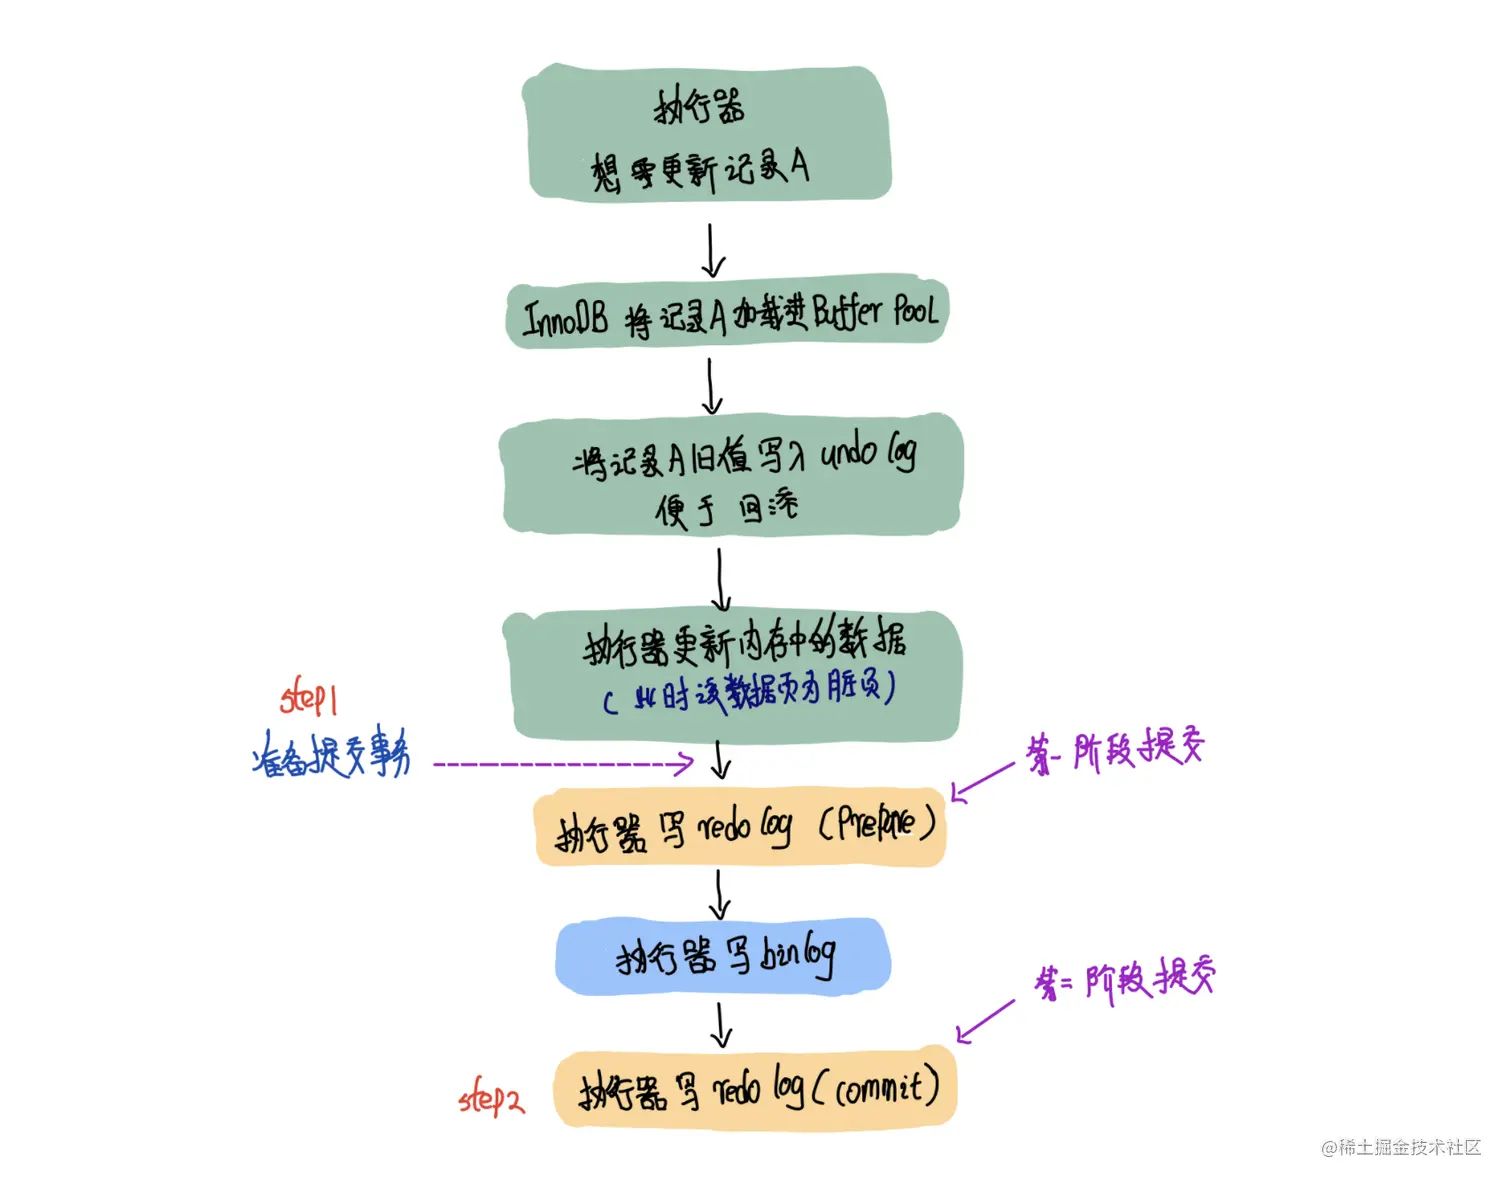 执行器
想要更新记录A
InnoDB 将记录A加载进Buffer Pool
将记录A旧值写入 undo log
便于回滚
执行器更新内存中的数据
(此时该数据页为脏页)
step1
准备提交事务
第一阶段提交
执行器写 redo log (Prepare)
执行器写 binlog
第二阶段提交
step2
执行器写 redo log (commit)
@稀土掘金技术社区